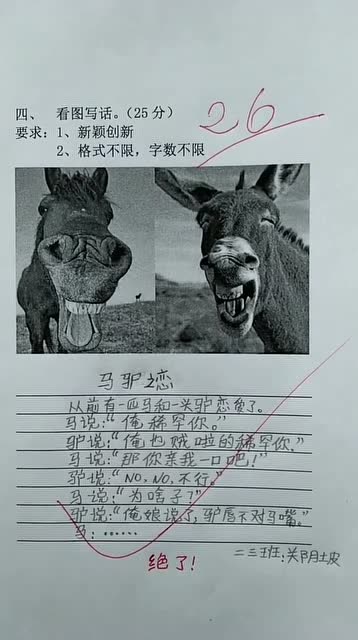 四、 看图写话。(25分)
26
要求：1、新颖创新
2、格式不限，字数不限
马驴之恋
从前有一匹马和一头驴恋爱了。
马说：“俺稀罕你。”
驴说：“俺也贼啦的稀罕你。”
马说：“那你亲我一口吧！”
驴说：“NO，NO，不行。”
马说：“为啥子？”
驴说：“俺娘说了，驴唇不对马嘴。”
马：……
二三班：关阴土皮
绝了！